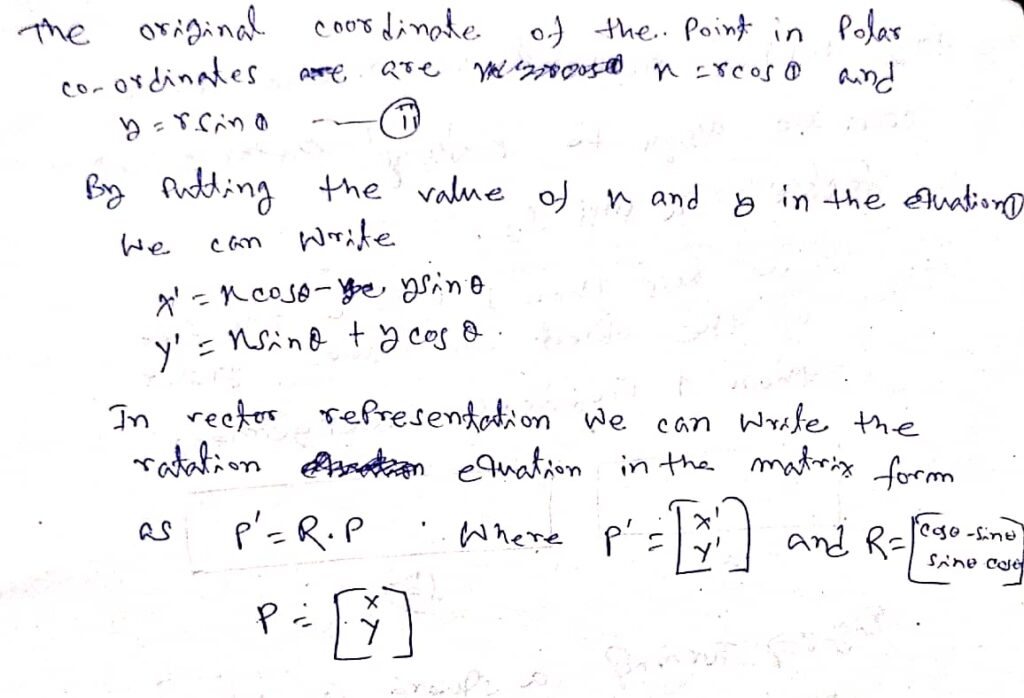 The original coordinate of the. Point in Polar
co-ordinates are are x = rcos Φ and
y = r sin Φ —— (II)
By Putting the value of x and y in the equation (I)
We can Write
x' = xcosθ - ysinθ
y' = xsinθ + ycosθ.
In vector representation we can write the
ratation equation in the matrix form
as P' = R.P . Where P' = [x' y'] and R = [cosθ -sinθ
sinθ cosθ]
P = [x y]